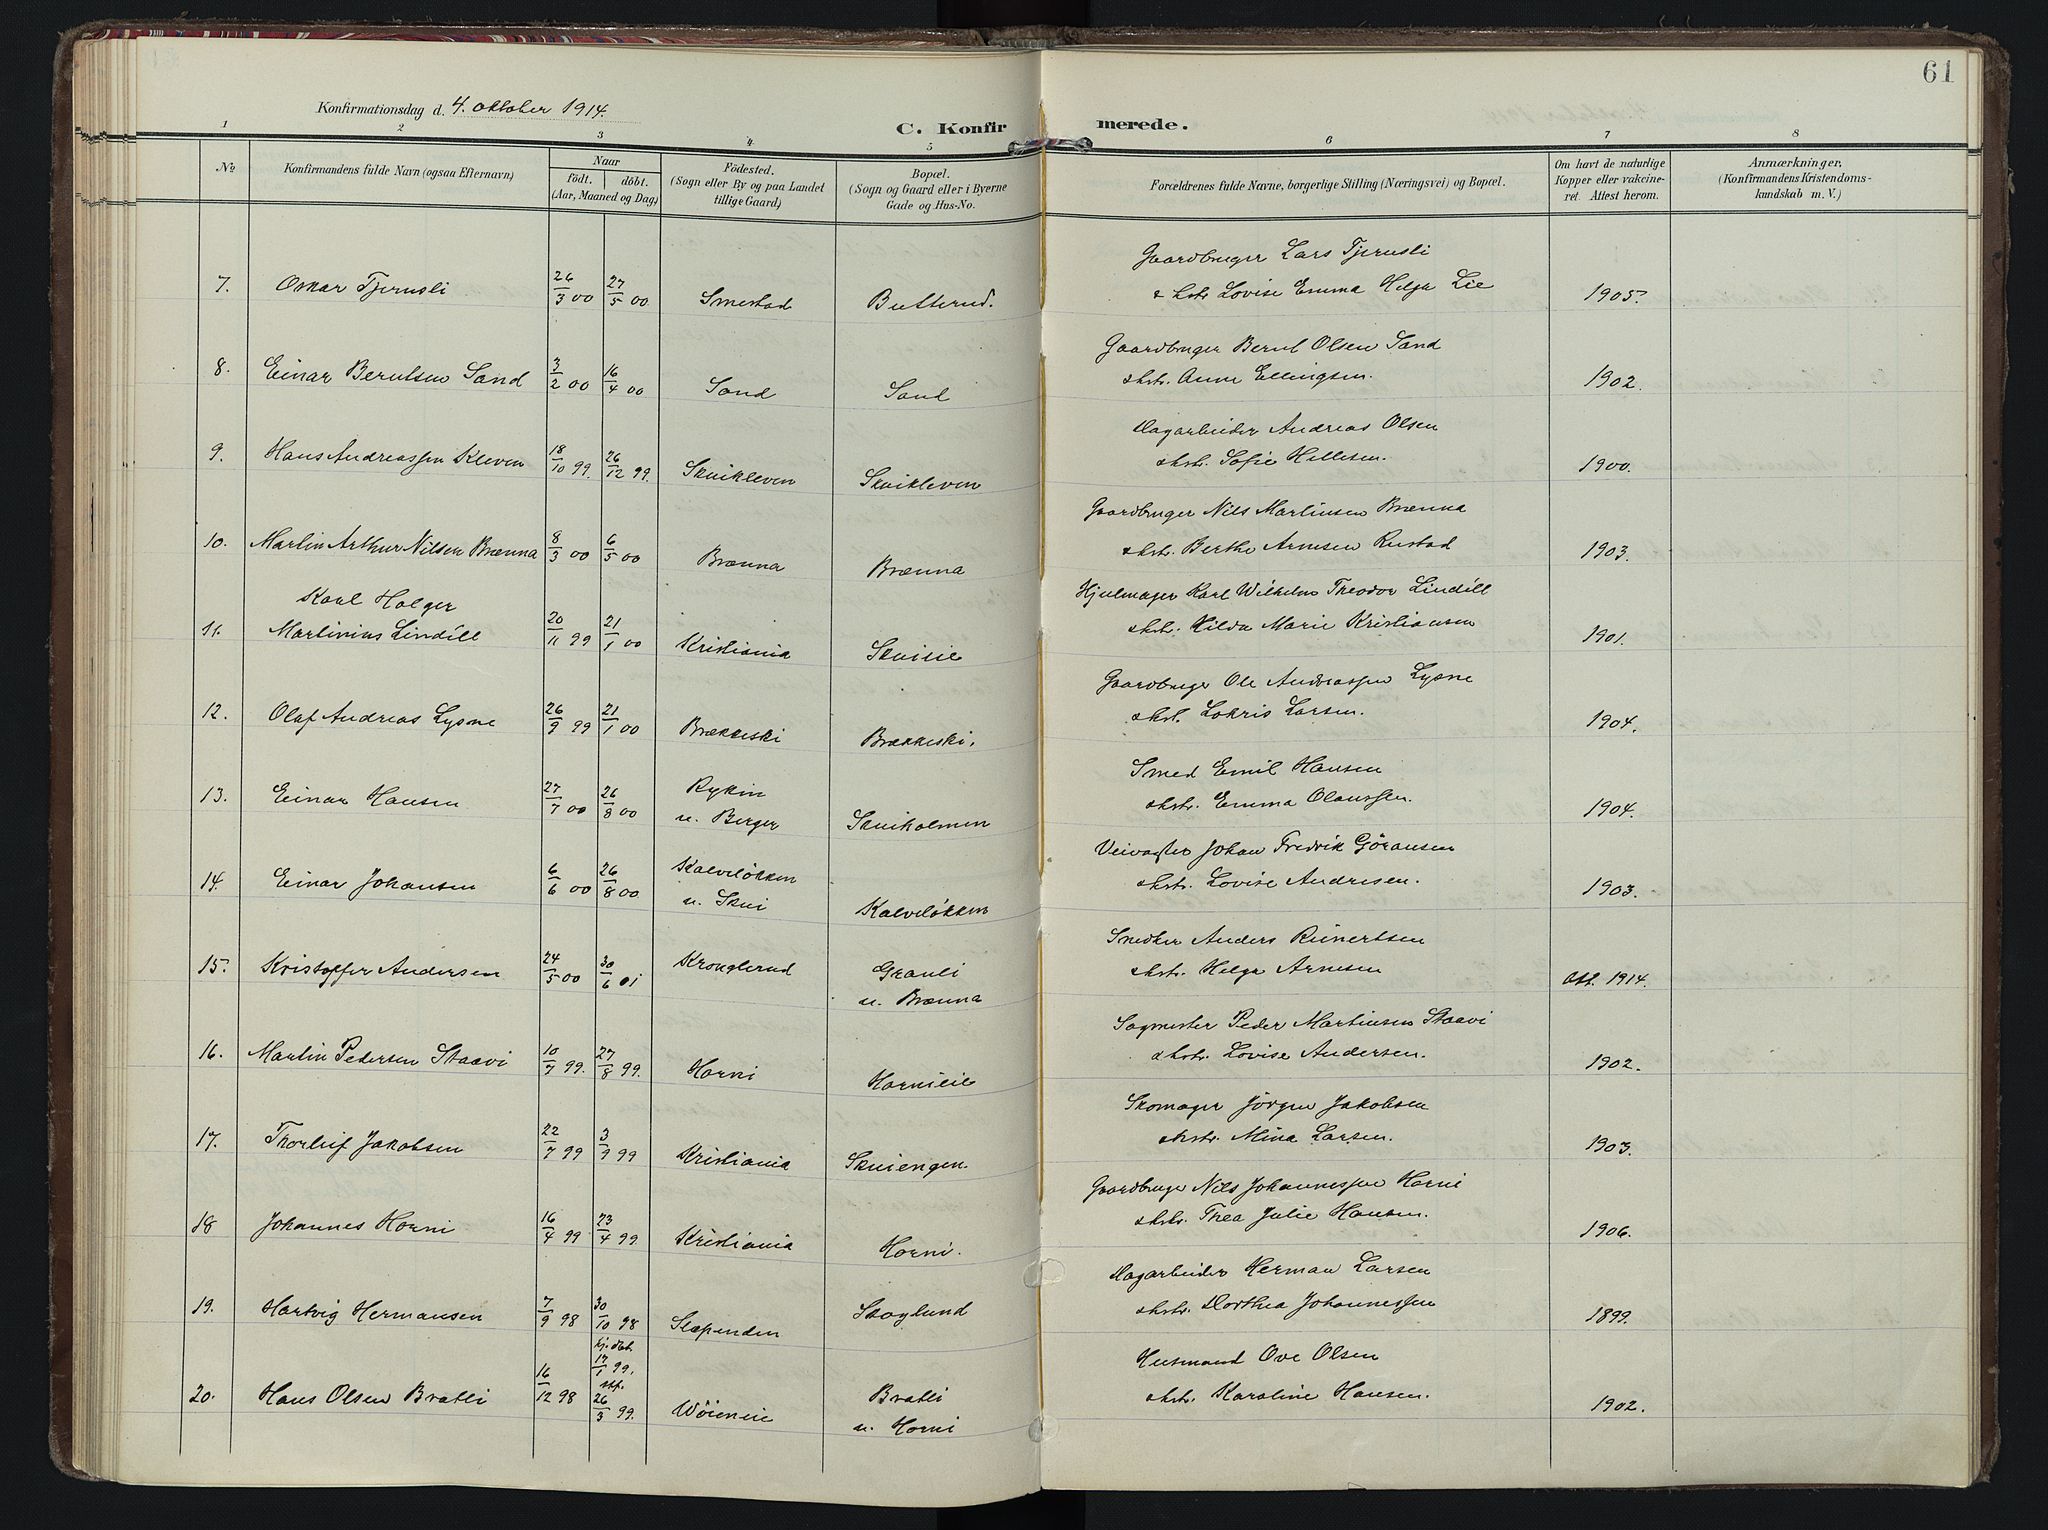 61
Konfirmationsdag d. 4. oktober 1914.
C. Konfirmerede.
1 2 3 4 5 6 7 8
No
Konfirmandens fulde Navn (ogsaa Efternavn)
Naar
födt. döbt.
(Aar, Maaned og Dag)
Födested.
(Sogn eller By og paa Landet
tillige Gaard)
Bopæl.
(Sogn og Gaard eller i Byerne
Gade og Hus-No.
Forældrenes fulde Navne, borgerlige Stilling (Næringsvei) og Bopæl.
Om havt de naturlige
Kopper eller vakcine-
ret. Attest herom.
Anmærkninger.
(Konfirmandens Kristendoms-
kundskab m. V.)
7. Oskar Tjernsli 26/3 00 27/5 00 Smestad Butterud.
Gaardbruger Lars Tjernsli
& hstr. Lovise Emma Helga Lie 1905.
8. Einar Berntsen Sand 3/2 00 16/4 00 Sand Sand
Gaardbruger Bernt Olsen Sand
& hstr. Anne Ellingsen. 1902.
9. Hans Andreassen Kleven 18/10 99. 26/12 99. Skuikleven Skuikleven
Dagarbeider Andreas Olsen
& hstr. Sofie Hellesen. 1900.
10. Martin Arthur Nilsen Brænna 8/3 00 6/5 00 Brænna Brænna
Gaardbruger Nils Martinsen Brænna
& hstr. Berthe Arnesen Rustad 1903.
11. Karl Holger
Martinius Lindéll 20/11 99 21/1 00 Kristiania Skuieie
Hjulmager Karl Wilhelm Theodor Lindéll
& hstr. Hilda Marie Kristiansen 1901.
12. Olaf Andreas Lysne 26/9 99 21/1 00 Brækkeski Brækkeski.
Gaardbruger Ole Andreassen Lysne
& hstr. Lokris Larsen. 1904.
13. Einar Hansen 27/7 00 26/8 00 Rykin
u. Berger Skuiholmen
Smed Emil Hansen
& hstr. Emma Olaussen. 1904.
14. Einar Johansen 6/6 00 26/8 00 Kalveløkken
u. Skui Kalveløkken
Veivogter Johan Fredrik Göransen
& hstr. Lovise Andresen. 1903.
15. Kristoffer Andersen 24/5 00 30/6 01 Kronglerud Grauli
u. Brænna
Snedker Anders Reinertsen
& hstr. Helga Arnesen okt. 1914.
16. Martin Pedersen Staavi 10/7 99. 27/8 99. Horni Hornieie
Sagmester Peder Martinsen Staavi
& hstr. Lovise Andersen. 1902.
17. Thorleif Jakobsen 22/7 99 3/9 99 Kristiania Skuiengen.
Skomager Jörgen Jakobsen
& hstr. Mina Larsen. 1903.
18 Johannes Horni 16/4 99 23/4 99. Kristiania Horni.
Gaardbruger Nils Johannessen Horni
& hstr. Thea Julie Hansen. 1906.
19. Hartvig Hermansen 7/9 98 30/10 98 Slæpenden Skoglund
Dagarbeider Herman Larsen
& hstr. Dorthea Johannessen 1899.
20. Hans Olsen Bratli 16/12 98 hj. døbt
17/1 99.
stf.
26/3 99. Wöieneie Bratli
u. Horni
Husmand Ove Olsen
& hstr. Karoline Hansen. 1902.